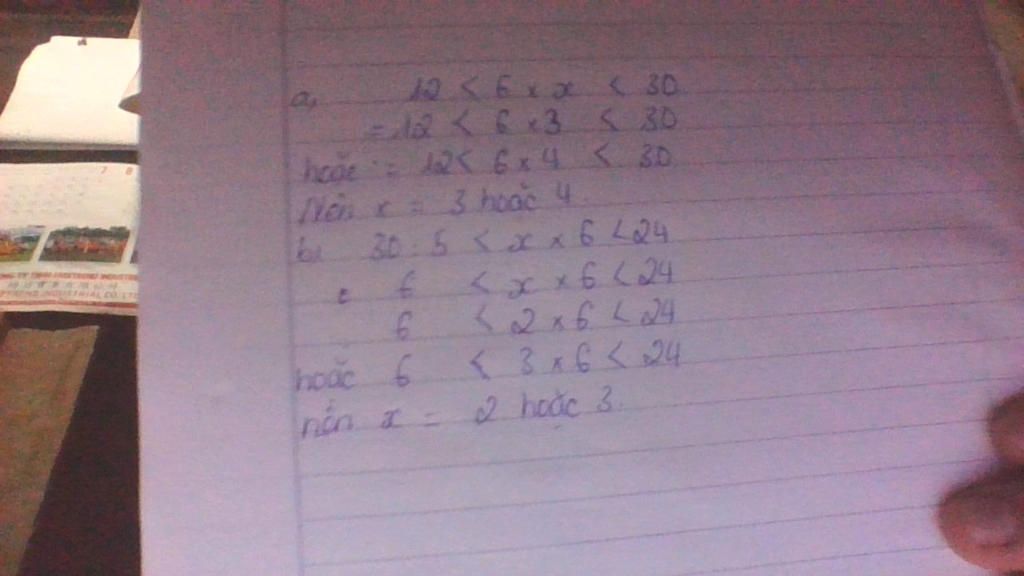 a, 12 < 6 x x < 30
= 12 < 6 x 3 < 30
hoặc : = 12 < 6 x 4 < 30
Nên x = 3 hoặc 4
b, 30 : 5 < x x 6 < 24
6 < x x 6 < 24
6 < 2 x 6 < 24
hoặc 6 < 3 x 6 < 24
nên x = 2 hoặc 3.